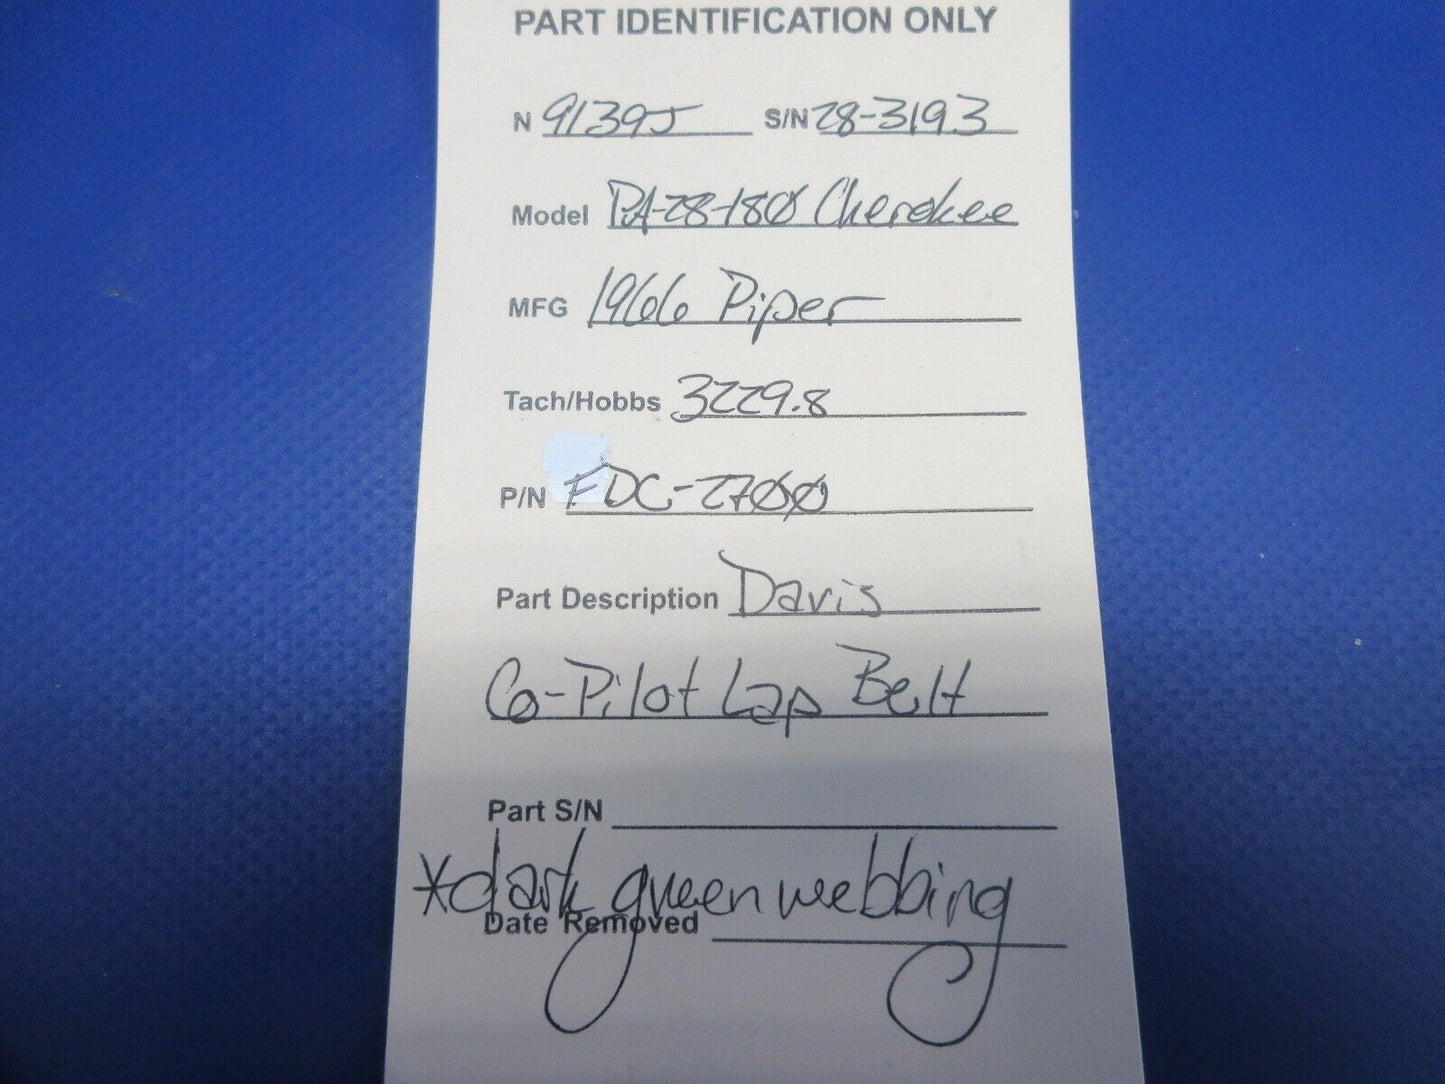 PART IDENTIFICATION ONLY
N 9139J S/N 28-3193
Model PA-28-180 Cherokee
MFG 1966 Piper
Tach/Hobbs 3229.8
P/N FDC-2700
Part Description Davis
Co-Pilot Lap Belt
Part S/N
*dark green webbing
Date Removed